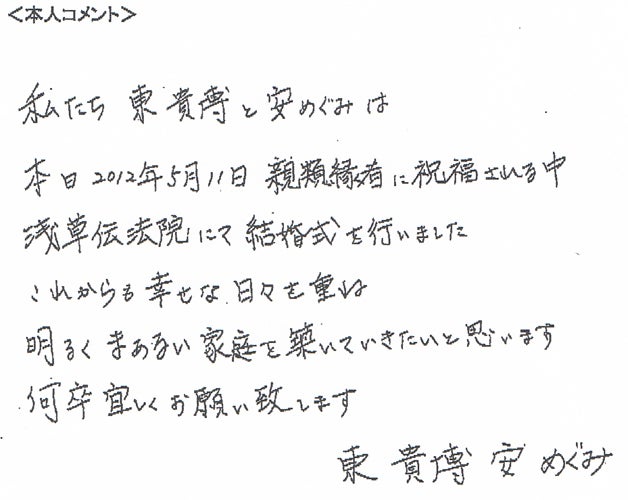 ＜本人コメント＞
私たち 東 貴博と安めぐみは
本日2012年5月11日 親類縁者に祝福される中
浅草伝法院にて結婚式を行いました
これからも幸せな日々を重ね
明るくまあるい家庭を築いていきたいと思います
何卒宜しくお願い致します
東 貴博 安 めぐみ